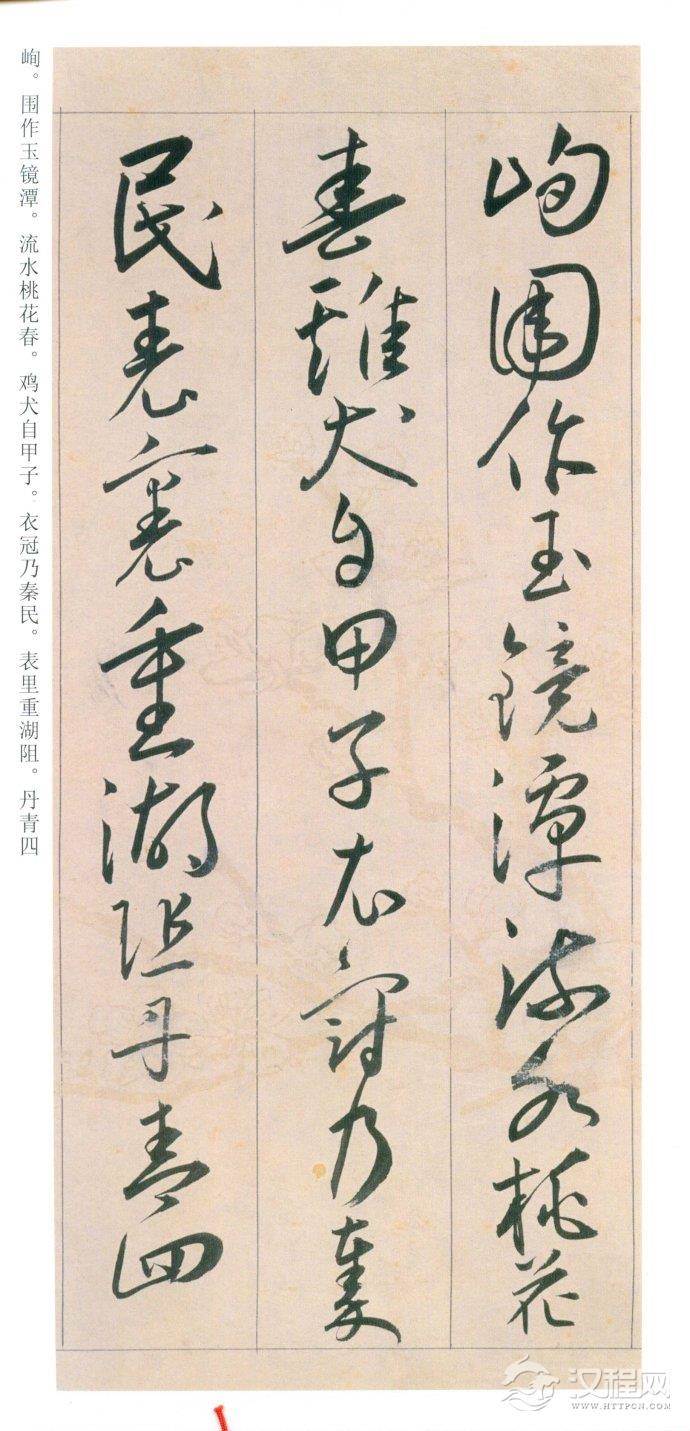 峋围作玉镜潭流水桃花
春雞犬自甲子衣冠乃秦
民表裏重湖阻丹青四
峋。围作玉镜潭。流水桃花春。鸡犬自甲子。衣冠乃秦民。表里重湖阻。丹青四
汉程网
WWW.HTTPCN.COM